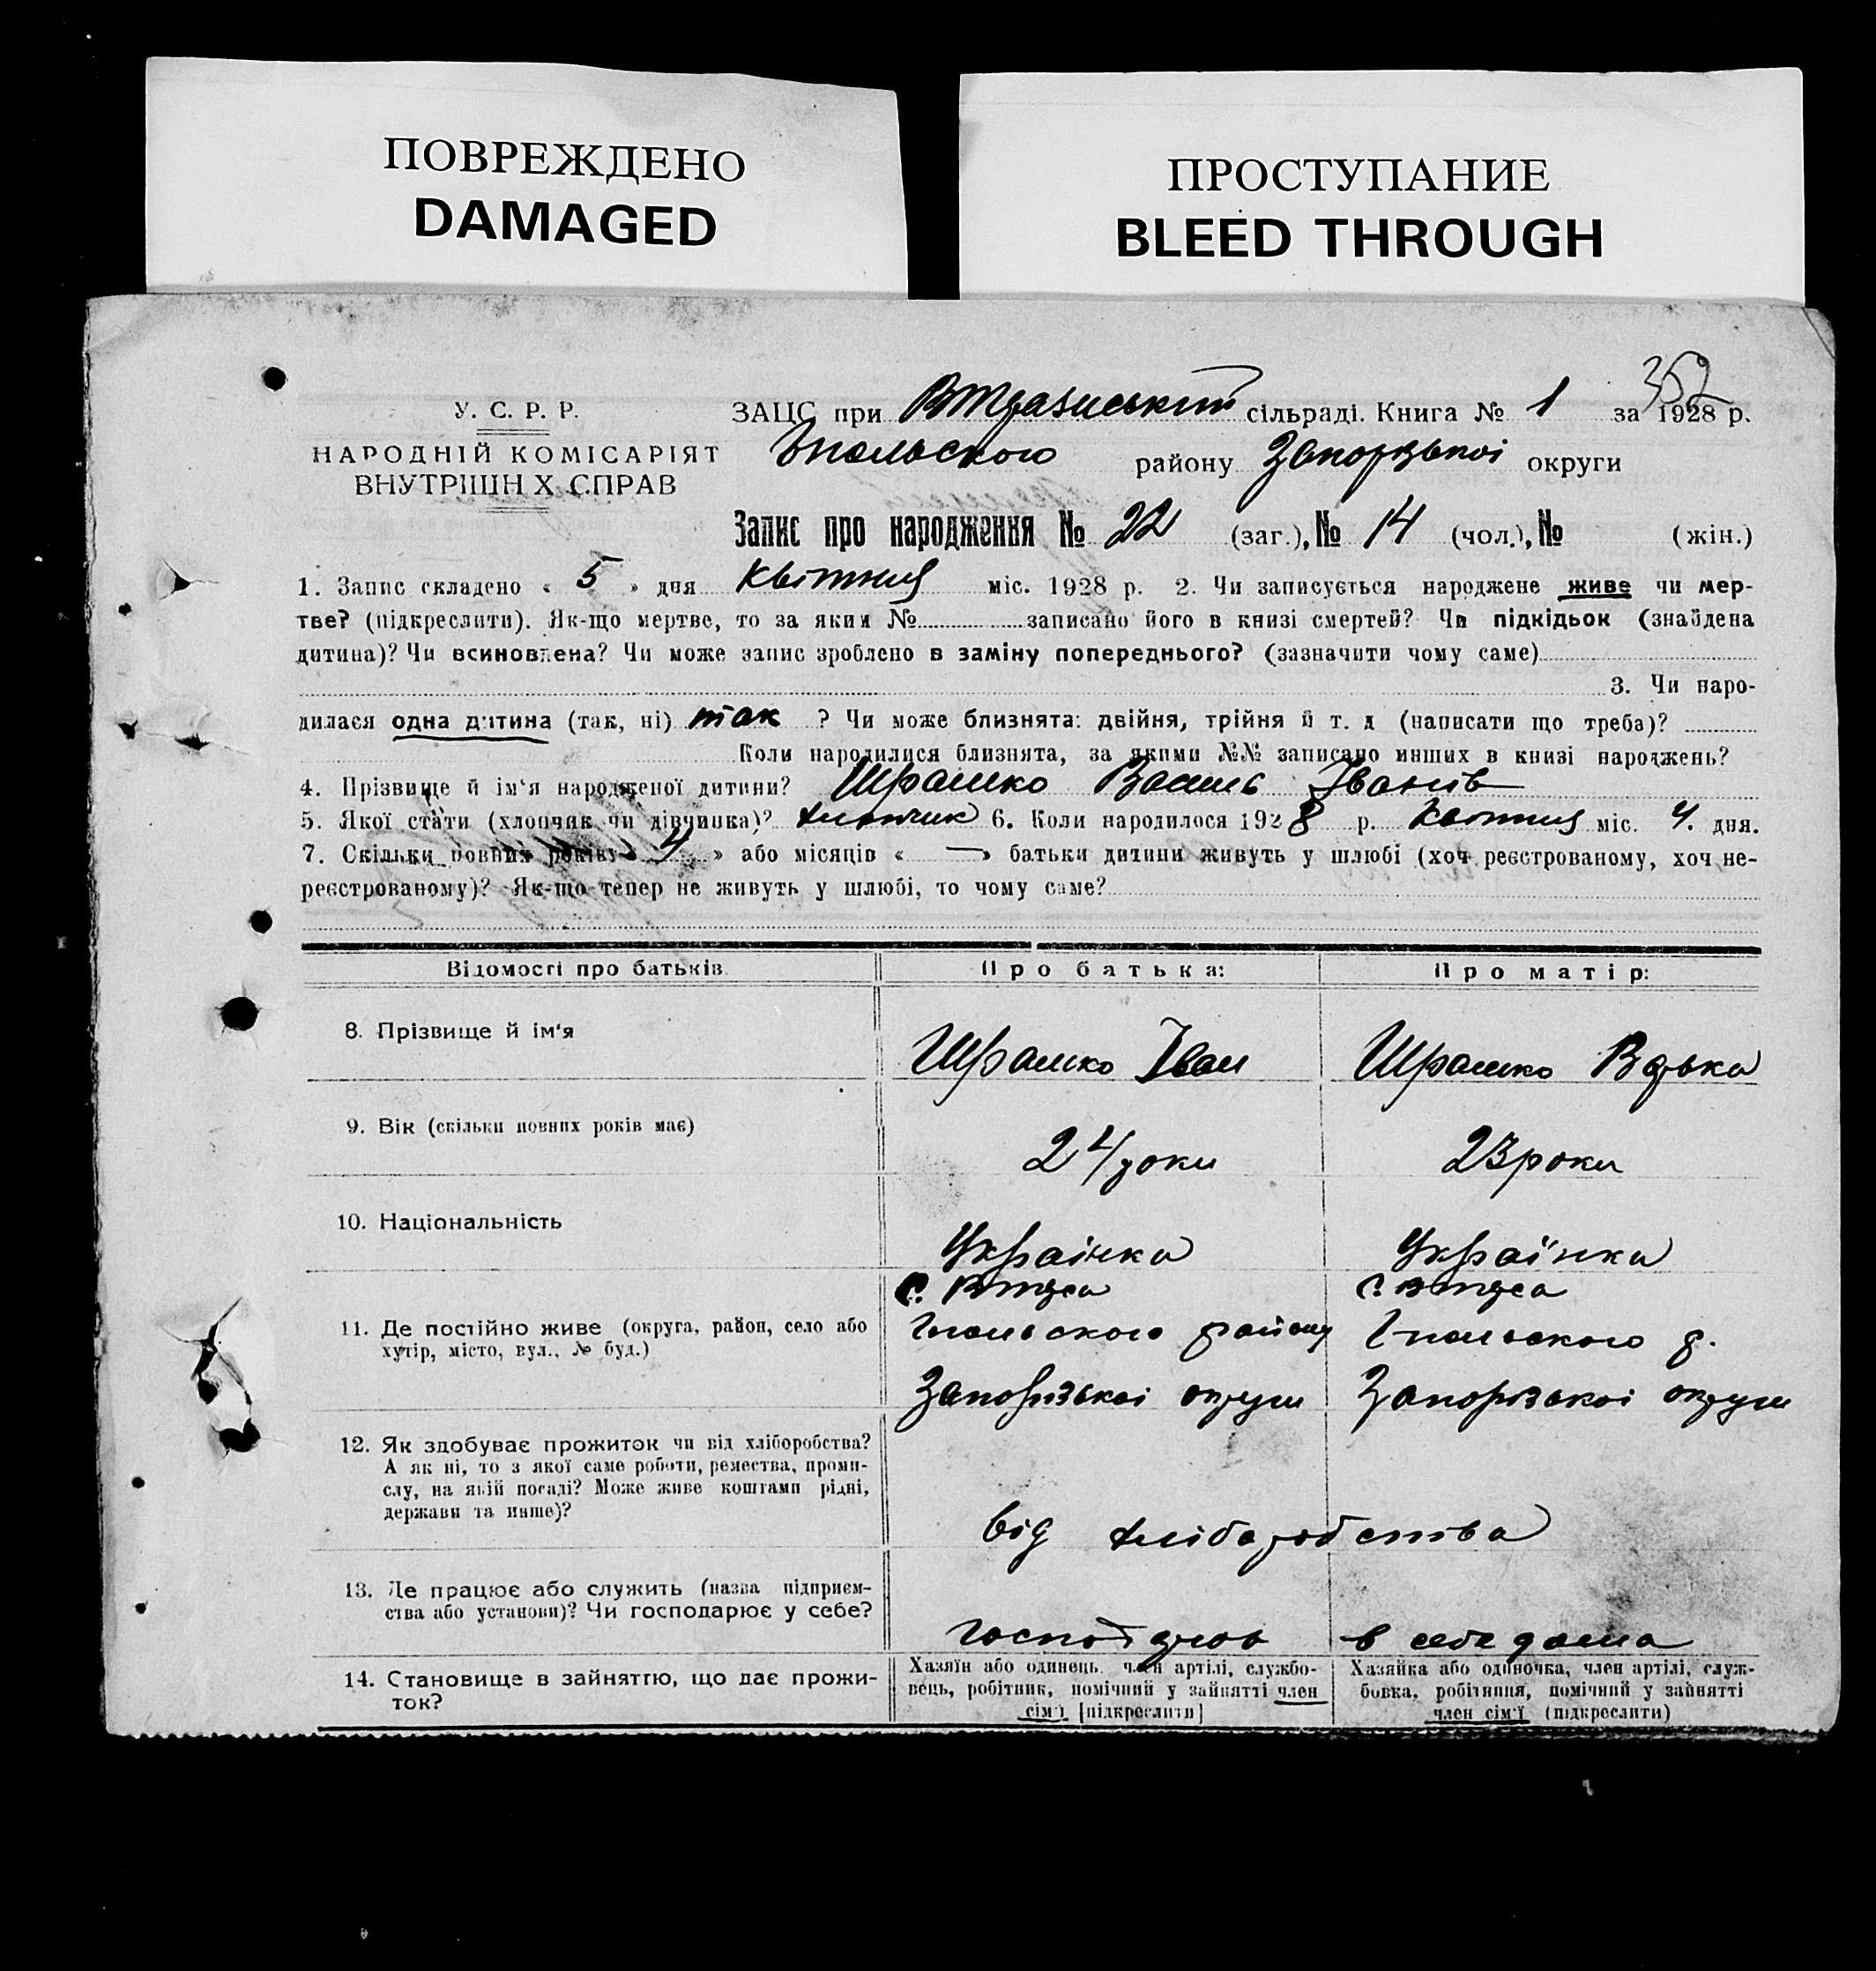 ПОВРЕЖДЕНО
DAMAGED
ПРОСТУПАНИЕ
BLEED THROUGH
352
У. С. Р. Р.
НАРОДНІЙ КОМІСАРІЯТ
ВНУТРІШН Х СПРАВ
ЗАЦС при сільраді. Книга № 1 за 1928 р.
району Запорізької округи
Запис про народження № 22 (заг.), № 14 (чол.), № (жін.)
1. Запис складено « 5 » дня квітня міс. 1928 р. 2. Чи записується народжене живе чи мер-
тве? (підкреслити). Як-що мертве, то за яким № записано його в книзі смертей? Чи підкідьок (знайдена
дитина)? Чи всиновлена? Чи може запис зроблено в заміну попереднього? (зазначити чому саме)
3. Чи наро-
дилася одна дитина (так, ні) так ? Чи може близнята: двійня, трійня й т. д (написати що треба)?
Коли народилися близнята, за якими №№ записано инших в книзі народжень?
4. Прізвище й ім'я народженої дитини? Шрамко Василь Іванів
5. Якої стати (хлопчик чи дівчинка)? хлопчик 6. Коли народилося 1928 р. квітня міс. 4. дня.
7. Скільки повних років « 4 » або місяців « — » батьки дитини живуть у шлюбі (хоч реєстрованому, хоч не-
реєстрованому)? Як-що тепер не живуть у шлюбі, то чому саме?
Відомості про батьків
Про батька:
Про матір:
8. Прізвище й ім'я
Шрамко Іван
Шрамко
9. Вік (скільки повних років має)
24 роки
23 роки
10. Національність
Українка
Українка
11. Де постійно живе (округа, район, село або
хутір, місто, вул., № буд.)
с.
району
Запорізької округи
с.
р.
Запорізької округи
12. Як здобуває прожиток чи від хліборобства?
А як ні, то з якої саме роботи, ремества, проми-
слу, на якій посаді? Може живе коштами рідні,
держави та инше)?
від хліборобства
13. Де працює або служить (назва підприєм-
ства або установи)? Чи господарює у себе?
в себе дома
14. Становище в зайняттю, що дає прожи-
ток?
Хазяїн або одинець, член артілі, службо-
вець, робітник, помічний у зайнятті член
сім'ї [підкреслити]
Хазяйка або одиночка, член артілі, служ-
бовка, робітниця, помічний у зайнятті
член сім'ї (підкреслити)